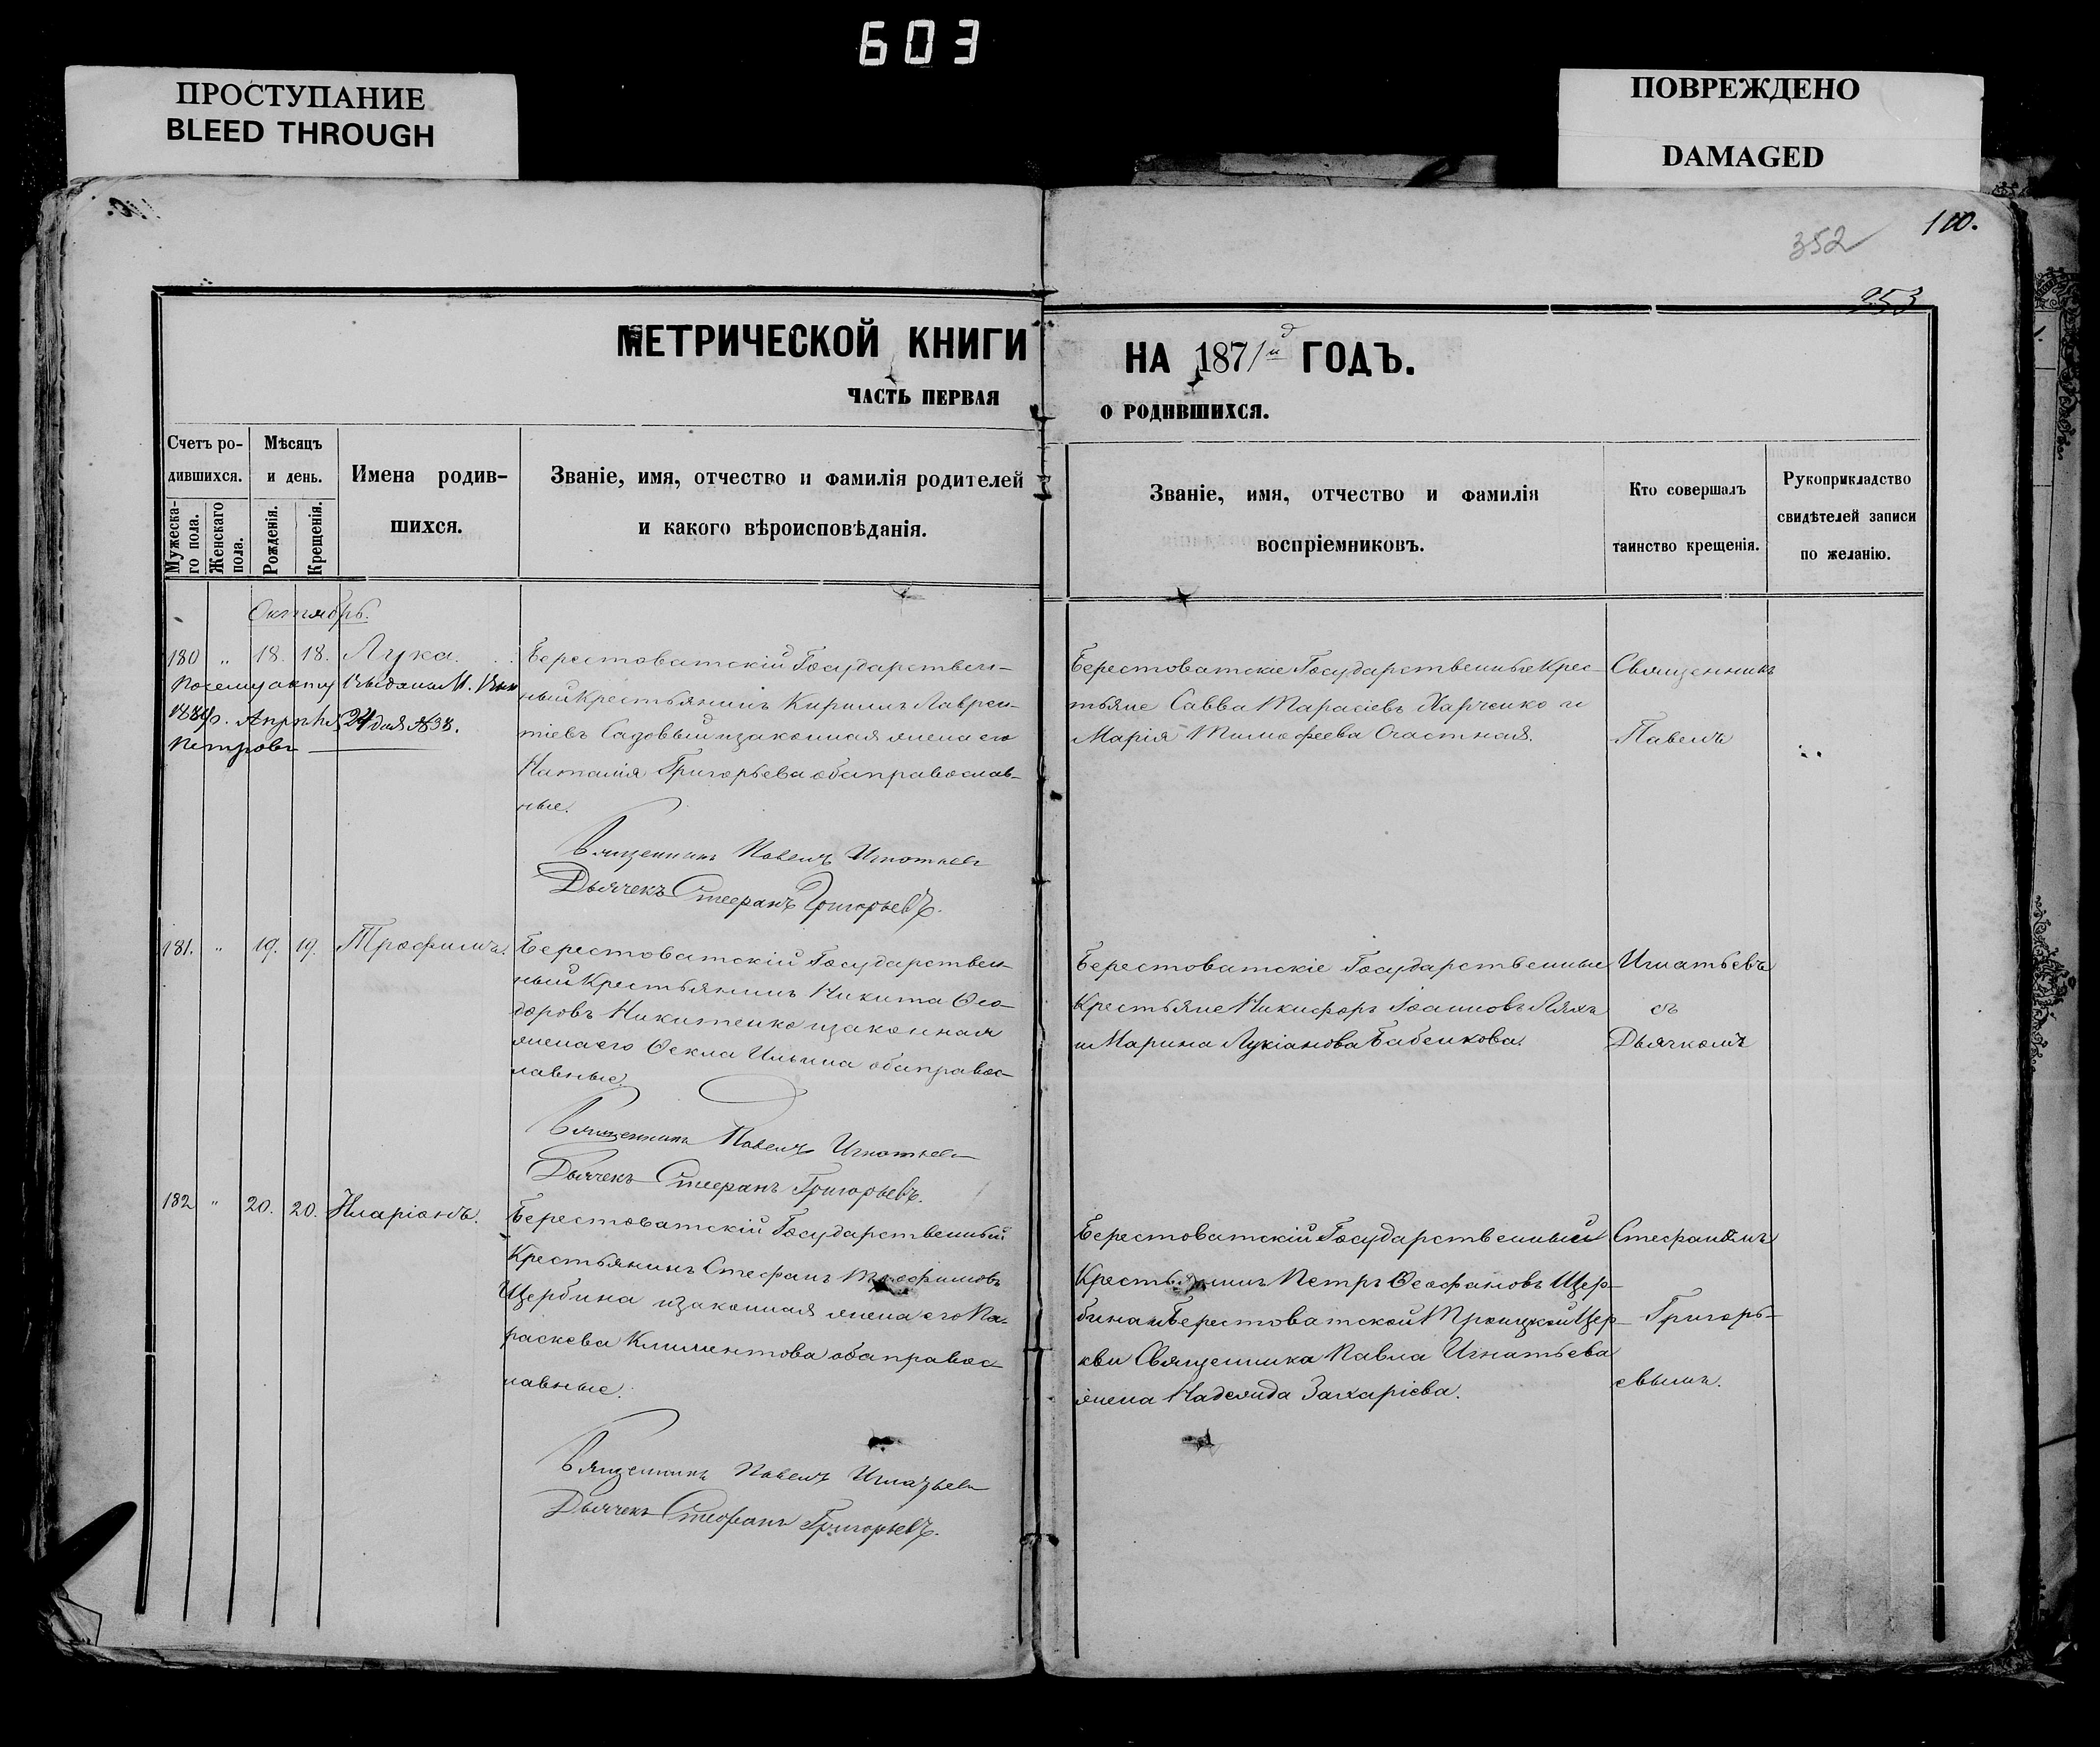 603
ПРОСТУПАНИЕ
BLEED THROUGH
ПОВРЕЖДЕНО
DAMAGED
110.
352
353
МЕТРИЧЕСКОЙ КНИГИ НА 1871й ГОДЪ.
ЧАСТЬ ПЕРВАЯ О РОДИВШИХСЯ.
Счетъ ро-
дившихся.
Мужеска-
го пола.
Женскаго
пола.
Мѣсяцъ
и день.
Рожденія.
Крещенія.
Имена родив-
шихся.
Званіе, имя, отчество и фамилія родителей
и какого вѣроисповѣданія.
Званіе, имя, отчество и фамилія
воспріемниковъ.
Кто совершалъ
таинство крещенія.
Рукоприкладство
свидѣтелей записи
по желанію.
Октябрь.
180 " 18. 18. Лука.
По сему акту выдана М.
Апрѣля 24 дня №38.
Петровъ
Берестоватскій Государствен-
ный Крестьянинъ Кириллъ Лаврен-
тіевъ Садовый и законная жена его
Наталія Григорьева оба православ-
ные.
Священникъ Павелъ Игнатьевъ
Дьячекъ Стефанъ Григорьевъ.
Берестоватскіе Государственные Крес-
тьяне Савва Тарасіевъ Харченко и
Марія Тимофеева Счастная.
Священникъ
Павелъ
181. " 19. 19. Трофимъ.
Берестоватскій Государствен-
ный Крестьянинъ Никита Ѳео-
доровъ Никитенко и законная
жена его Ѳекла Ильина оба правос-
лавные.
Священникъ Павелъ Игнатьевъ
Дьячекъ Стефанъ Григорьевъ.
Берестоватскіе Государственные
Крестьяне Никифоръ Іоанновъ Ляхъ
и Марина Лукіанова Бабенкова.
Игнатьевъ
съ
Дьячкомъ
182 " 20. 20. Иларіонъ.
Берестоватскій Государственный
Крестьянинъ Стефанъ Трофимовъ
Щербина и законная жена его Па-
раскева Климентова оба правос-
лавные.
Священникъ Павелъ Игнатьевъ
Дьячекъ Стефанъ Григорьевъ.
Берестоватскій Государственный
Крестьянинъ Петръ Ѳеофановъ Щер-
бина и Берестоватской Троицкой Цер-
кви Священника Павла Игнатьева
жена Надежда Захаріева.
Стефаномъ
Григорь-
евымъ.